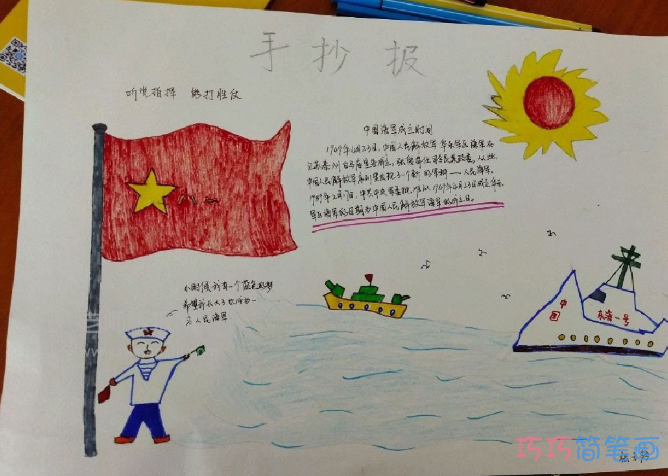 手抄报
听党指挥 能打胜仗
中国海军成立时间
1949年4月23日,中国人民解放军华东军区海军在
江苏泰州白马庙宣告成立,张爱萍任司令员兼政委,从此
中国人民解放军序列里出现了一个新的军种——人民海军。
1989年2月17日,中共中央军委批准以1949年4月23日成立华东
军区海军的日期为中国人民解放军海军的成立日。
小时候我有一个蓝色的梦
希望我长大了也成为一
名人民海军
中国
东海一号
巧巧简笔画